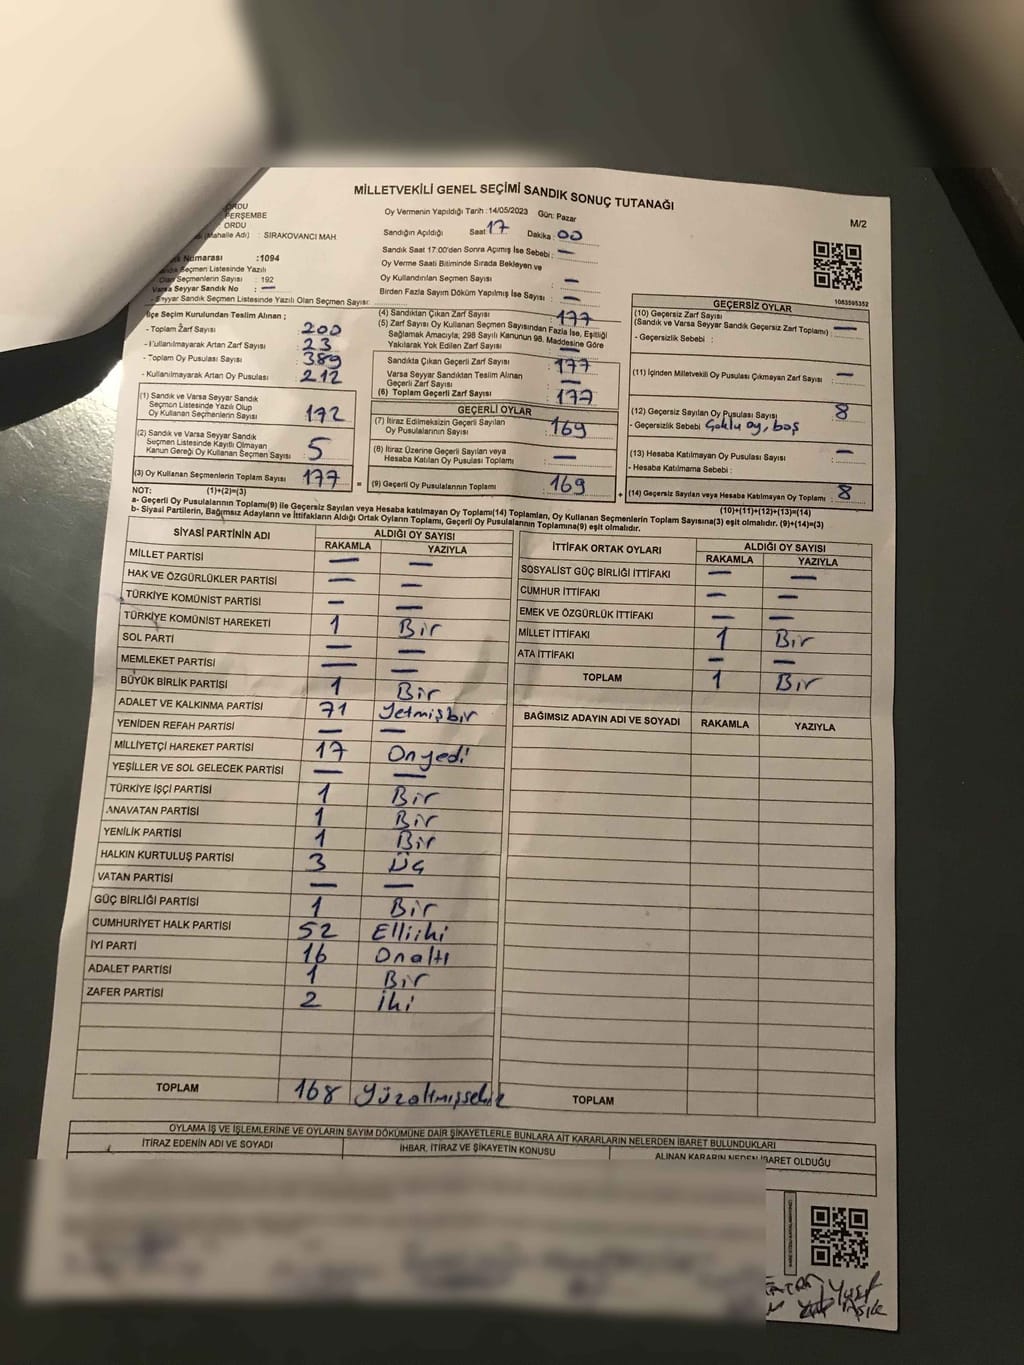 MİLLETVEKİLİ GENEL SEÇİMİ SANDIK SONUÇ TUTANAĞI
M/2
ORDU
PERŞEMBE
ORDU
(Mahalle Adı) : SIRAKOVANCI MAH.
Numarası :1094
Seçmen Listesinde Yazılı
Olan Seçmenlerin Sayısı : 192
Varsa Seyyar Sandık No : —
- Seyyar Sandık Seçmen Listesinde Yazılı Olan Seçmen Sayısı:
Oy Vermenin Yapıldığı Tarih :14/05/2023 Gün: Pazar
Sandığın Açıldığı Saat 17 Dakika : 00
Sandık Saat 17:00'den Sonra Açımış İse Sebebi : —
Oy Verme Saati Bitiminde Sırada Bekleyen ve
Oy Kullandırılan Seçmen Sayısı —
Birden Fazla Sayım Döküm Yapılmış İse Sayısı : —
1083595352
İlçe Seçim Kurulundan Teslim Alınan ;
- Toplam Zarf Sayısı 200
- Kullanılmayarak Artan Zarf Sayısı 23
- Toplam Oy Pusulası Sayısı 389
- Kullanılmayarak Artan Oy Pusulası 212
(1) Sandık ve Varsa Seyyar Sandık
Seçmen Listesinde Yazılı Olup
Oy Kullanan Seçmenlerin Sayısı 172
(2) Sandık ve Varsa Seyyar Sandık
Seçmen Listesinde Kayıtlı Olmayan
Kanun Gereği Oy Kullanan Seçmen Sayısı 5
(3) Oy Kullanan Seçmenlerin Toplam Sayısı 177
(1)+(2)=(3)
(4) Sandıktan Çıkan Zarf Sayısı : 177
(5) Zarf Sayısı Oy Kullanan Seçmen Sayısından Fazla İse, Eşitliği
Sağlamak Amacıyla, 298 Sayılı Kanunun 98. Maddesine Göre
Yakılarak Yok Edilen Zarf Sayısı : —
Sandıkta Çıkan Geçerli Zarf Sayısı : 177
Varsa Seyyar Sandıktan Teslim Alınan
Geçerli Zarf Sayısı : —
(6) Toplam Geçerli Zarf Sayısı : 177
GEÇERLİ OYLAR
(7) İtiraz Edilmeksizin Geçerli Sayılan
Oy Pusulalarının Sayısı : 169
(8) İtiraz Üzerine Geçerli Sayılan veya
Hesaba Katılan Oy Pusulası Toplamı : —
= (9) Geçerli Oy Pusulalarının Toplamı : 169
GEÇERSİZ OYLAR
(10) Geçersiz Zarf Sayısı
(Sandık ve Varsa Seyyar Sandık Geçersiz Zarf Toplamı) : —
- Geçersizlik Sebebi :
(11) İçinden Milletvekili Oy Pusulası Çıkmayan Zarf Sayısı : —
(12) Geçersiz Sayılan Oy Pusulası Sayısı : 8
- Geçersizlik Sebebi Çoklu oy, boş
(13) Hesaba Katılmayan Oy Pusulası Sayısı : —
- Hesaba Katılmama Sebebi :
+ (14) Geçersiz Sayılan veya Hesaba Katılmayan Oy Toplamı : 8
(10)+(11)+(12)+(13)=(14)
NOT:
a- Geçerli Oy Pusulalarının Toplamı(9) ile Geçersiz Sayılan veya Hesaba katılmayan Oy Toplamı(14) Toplamları, Oy Kullanan Seçmenlerin Toplam Sayısına(3) eşit olmalıdır. (9)+(14)=(3)
b- Siyasi Partilerin, Bağımsız Adayların ve İttifakların Aldığı Ortak Oyların Toplamı, Geçerli Oy Pusulalarının Toplamına(9) eşit olmalıdır.
SİYASİ PARTİNİN ADI ALDIĞI OY SAYISI
RAKAMLA YAZIYLA
MİLLET PARTİSİ — —
HAK VE ÖZGÜRLÜKLER PARTİSİ — —
TÜRKİYE KOMÜNİST PARTİSİ — —
TÜRKİYE KOMÜNİST HAREKETİ 1 Bir
SOL PARTİ — —
MEMLEKET PARTİSİ — —
BÜYÜK BİRLİK PARTİSİ 1 Bir
ADALET VE KALKINMA PARTİSİ 71 Yetmişbir
YENİDEN REFAH PARTİSİ — —
MİLLİYETÇİ HAREKET PARTİSİ 17 Onyedi
YEŞİLLER VE SOL GELECEK PARTİSİ — —
TÜRKİYE İŞÇİ PARTİSİ 1 Bir
ANAVATAN PARTİSİ 1 Bir
YENİLİK PARTİSİ 1 Bir
HALKIN KURTULUŞ PARTİSİ 3 Üç
VATAN PARTİSİ — —
GÜÇ BİRLİĞİ PARTİSİ 1 Bir
CUMHURİYET HALK PARTİSİ 52 Elliiki
İYİ PARTİ 16 Onaltı
ADALET PARTİSİ 1 Bir
ZAFER PARTİSİ 2 İki
TOPLAM 168 Yüzaltmışsekiz
İTTİFAK ORTAK OYLARI ALDIĞI OY SAYISI
RAKAMLA YAZIYLA
SOSYALİST GÜÇ BİRLİĞİ İTTİFAKI — —
CUMHUR İTTİFAKI — —
EMEK VE ÖZGÜRLÜK İTTİFAKI — —
MİLLET İTTİFAKI 1 Bir
ATA İTTİFAKI — —
TOPLAM 1 Bir
BAĞIMSIZ ADAYIN ADI VE SOYADI RAKAMLA YAZIYLA
TOPLAM
OYLAMA İŞ VE İŞLEMLERİNE VE OYLARIN SAYIM DÖKÜMÜNE DAİR ŞİKAYETLERLE BUNLARA AİT KARARLARIN NELERDEN İBARET BULUNDUKLARI
İTİRAZ EDENİN ADI VE SOYADI İHBAR, İTİRAZ VE ŞİKAYETİN KONUSU ALINAN KARARIN NEDEN İBARET OLDUĞU
Yusuf